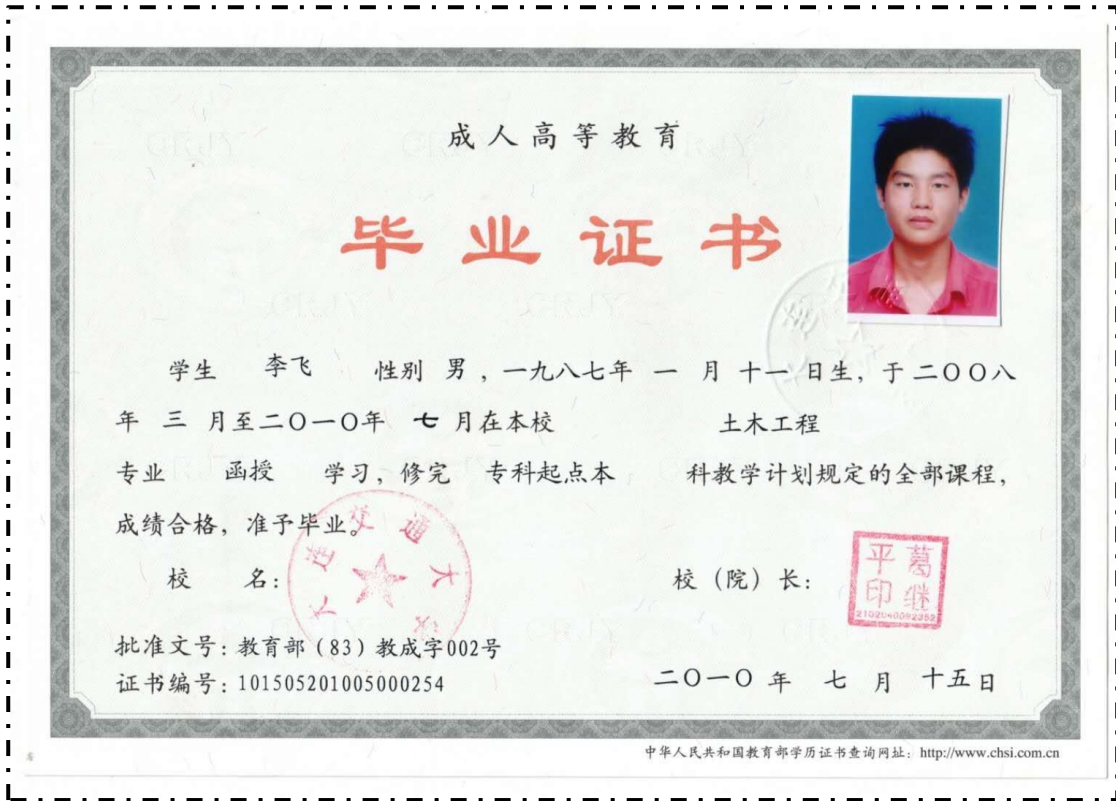 成人高等教育
毕业证书
学生 李飞 性别 男，一九八七年 一 月 十一 日生，于二〇〇八
年 三 月至二〇一〇年 七 月在本校 土木工程
专业 函授 学习，修完 专科起点本 科教学计划规定的全部课程，
成绩合格，准予毕业。
大连交通大学
校 名： 校（院）长：
葛继平印
2102040092352
批准文号：教育部（83）教成字002号
证书编号：101505201005000254
二〇一〇 年 七 月 十五日
中华人民共和国教育部学历证书查询网址：http://www.chsi.com.cn